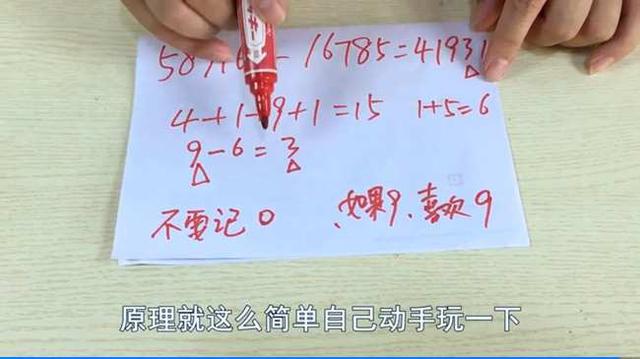 58716 - 16785=41931
4+1+9+1=15 1+5=6
9-6=3
不要记0 如果9、喜欢9
原理就这么简单自己动手玩一下